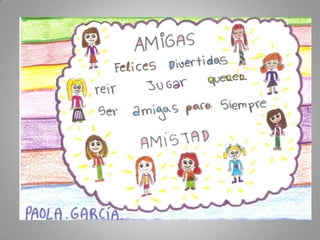 AMIGAS
Felices Divertidas
reir JUGAR
Ser amigas para siempre
AMISTAD
PAOLA.GARCÍA.